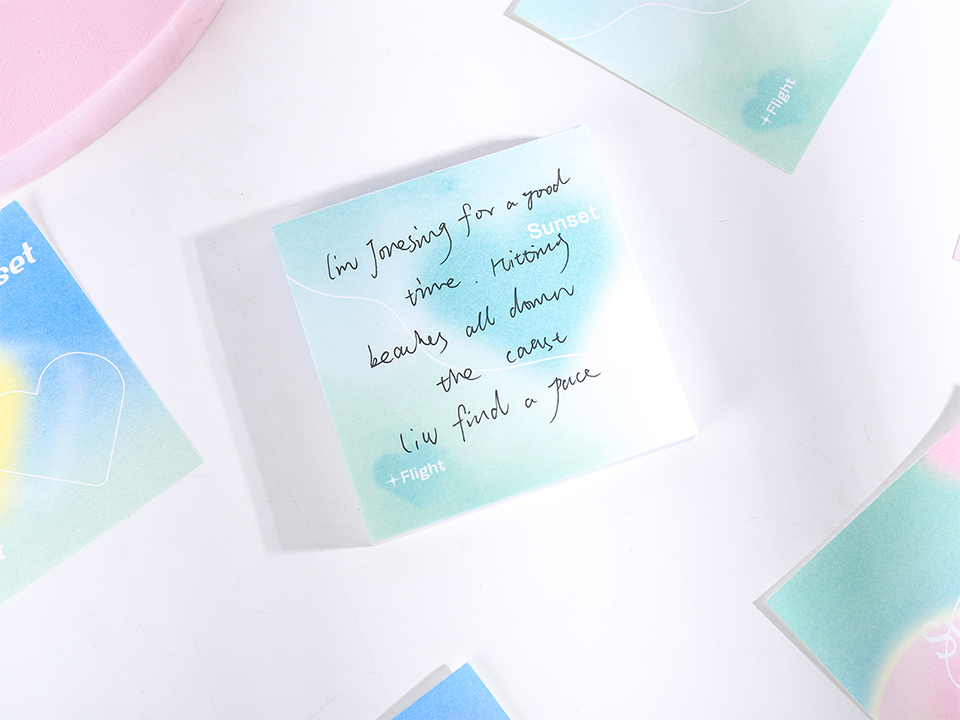 +Flight
set
I'm Jonesing for a good
Sunset
time. Hitting
beaches all down
the coast
I'w find a pace
+Flight